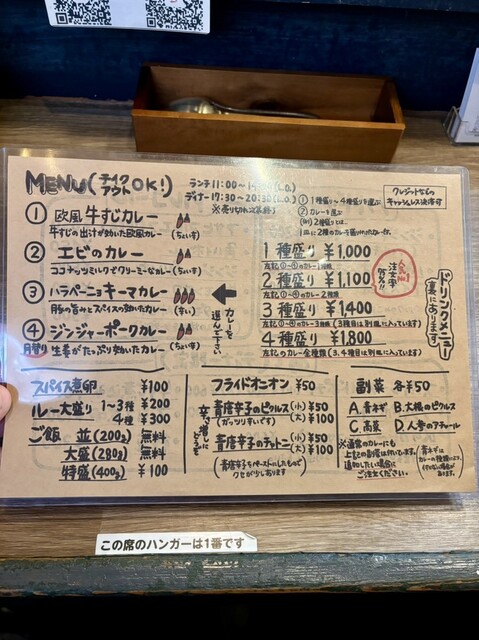 MENU(テイクアウトOK!)
ランチ11:00〜15:00(L.O.)
ディナー17:30〜20:30(L.O.)
※売り切れ次第終了
クレジットなどの
キャッシュレス決済可
① 欧風 牛すじカレー
牛すじの出汁が効いた欧風カレー
(ちょい辛)
② エビのカレー
ココナッツミルクでクリーミーなカレー
(ちょい辛)
③ ハラペーニョキーマカレー
豚の旨みとスパイスの効いたカレー
(辛い)
④ ジンジャーポークカレー
月替り 生姜がたっぷり効いたカレー
(ちょい辛)
カレーを
選んで下さい
① 1種盛り〜4種盛りを選ぶ
② カレーを選ぶ
(例)2種盛りとは…
1皿に2種のカレーが盛りつけたカレー
1種盛り ¥1,000
左記①〜④のカレー1種類
2種盛り ¥1,100
左記①〜④のカレー2種類
人気No.1
注文率
3種盛り ¥1,400
左記①〜④のカレー3種類(3種目は別皿に入っています)
4種盛り ¥1,800
左記のカレー全種類(3,4種目は別皿に入っています)
ドリンクメニュー
(裏にあります)
スパイス煮卵 ¥100
ルー大盛り 1〜3種 ¥200
4種 ¥300
ご飯 並(200g) 無料
大盛(280g) 無料
特盛(400g) ¥100
フライドオニオン ¥50
辛さ増しにどうぞ
青唐辛子のピクルス(小) ¥50
(ガッツリすいです) (大) ¥100
青唐辛子のチャトニ(小) ¥50
(大) ¥100
(青唐辛子をペーストにしたもので
クセが少しあります)
副菜 各¥50
A.青ネギ B.大根のピクルス
C.高菜 D.人参のアチャール
※通常のカレーにも
上記の副菜は付いています。
追加したい場合に
ご注文ください。
この席のハンガーは1番です